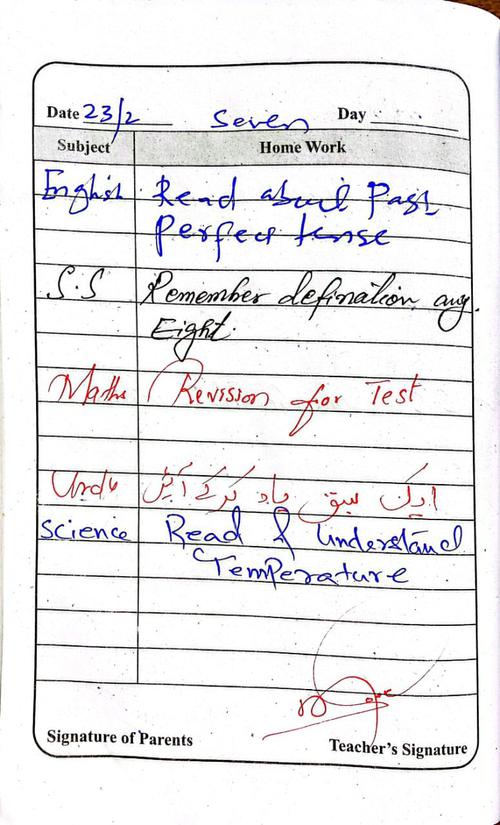 Date 23/2 Seven Day
Subject Home Work
English Read about Past
Perfect tense
S.S Remember defination any
Eight.
Maths Revision for Test
Urdu ایک سبق یاد کر کے آئیں
Science Read & Understand
Temperature
Signature of Parents Teacher's Signature